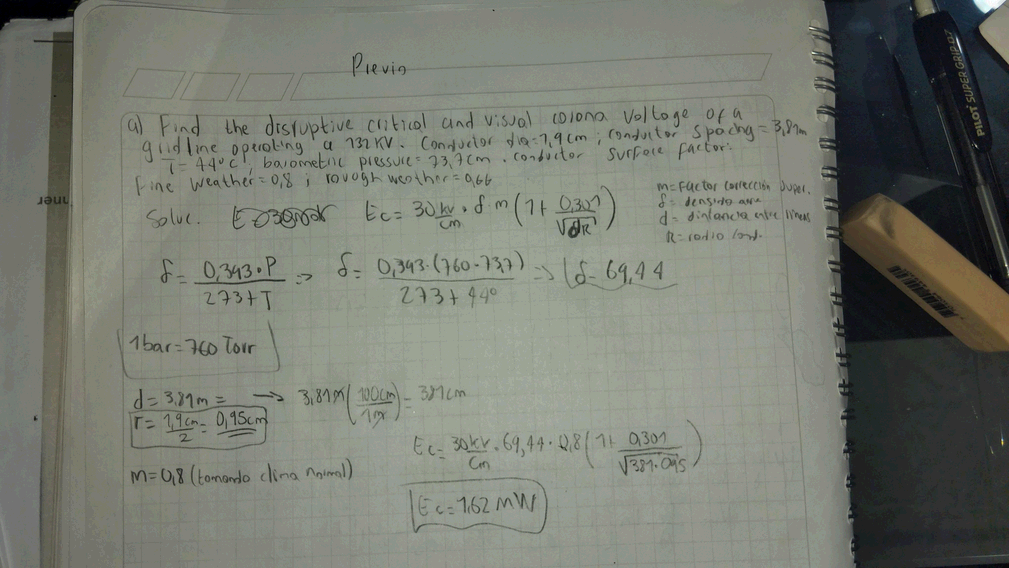 Previo
a) Find the disruptive critical and visual corona voltage of a
grid line operating a 132 KV. Conductor dia=1,9cm; conductor spacing=3,81m
T=44°C; barometric pressure=73,7cm. conductor surface factor:
fine weather=0,8; rough weather=0,66
Solve. Ec=30 kv/cm · δ m (1+ 0,301/√dR)
m=Factor corrección super.
δ=densidad aire
d=distancia entre líneas
R=radio cond.
δ= 0,393·P/273+T => δ= 0,393·(760·737)/273+44° => δ=69,44
1bar=760 Torr
d=3,81m= → 3,81m(100cm/1m)=381cm
r= 1,9cm/2 = 0,95cm
Ec=30kv/cm·69,44·0,8(1+ 0,301/√381·0,95)
m=0,8 (tomando clima normal)
Ec=1,62 MW
PILOT SUPER GRIP 0.7